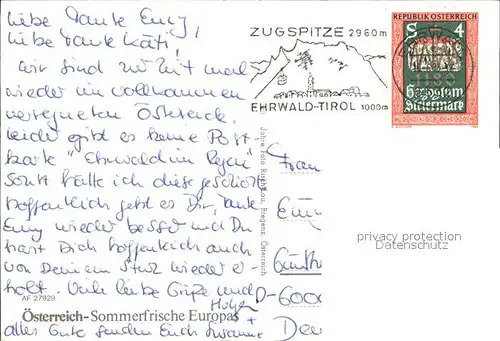 Liebe Tante Emy,
liebe Tante Käti!
Wir sind zur Zeit mal
wieder im vollkommen
verregneten Österreich.
Leider gibt es keine Post-
karte "Ehrwald im Regen"
sonst hätte ich diese geschickt
Hoffentlich geht es Dir, Tante
Emy wieder besser und Du
hast Dich hoffentlich auch
von Deinem Sturz wieder er-
holt. Viele liebe Grüße und
alles Gute senden Euch
ZUGSPITZE 2960m
EHRWALD-TIROL 1000m
REPUBLIK ÖSTERREICH
S 4
Steiermark
Frau
Emy
D-6000
AF 27929
Österreich-Sommerfrische Europas
privacy protection
Datenschutz